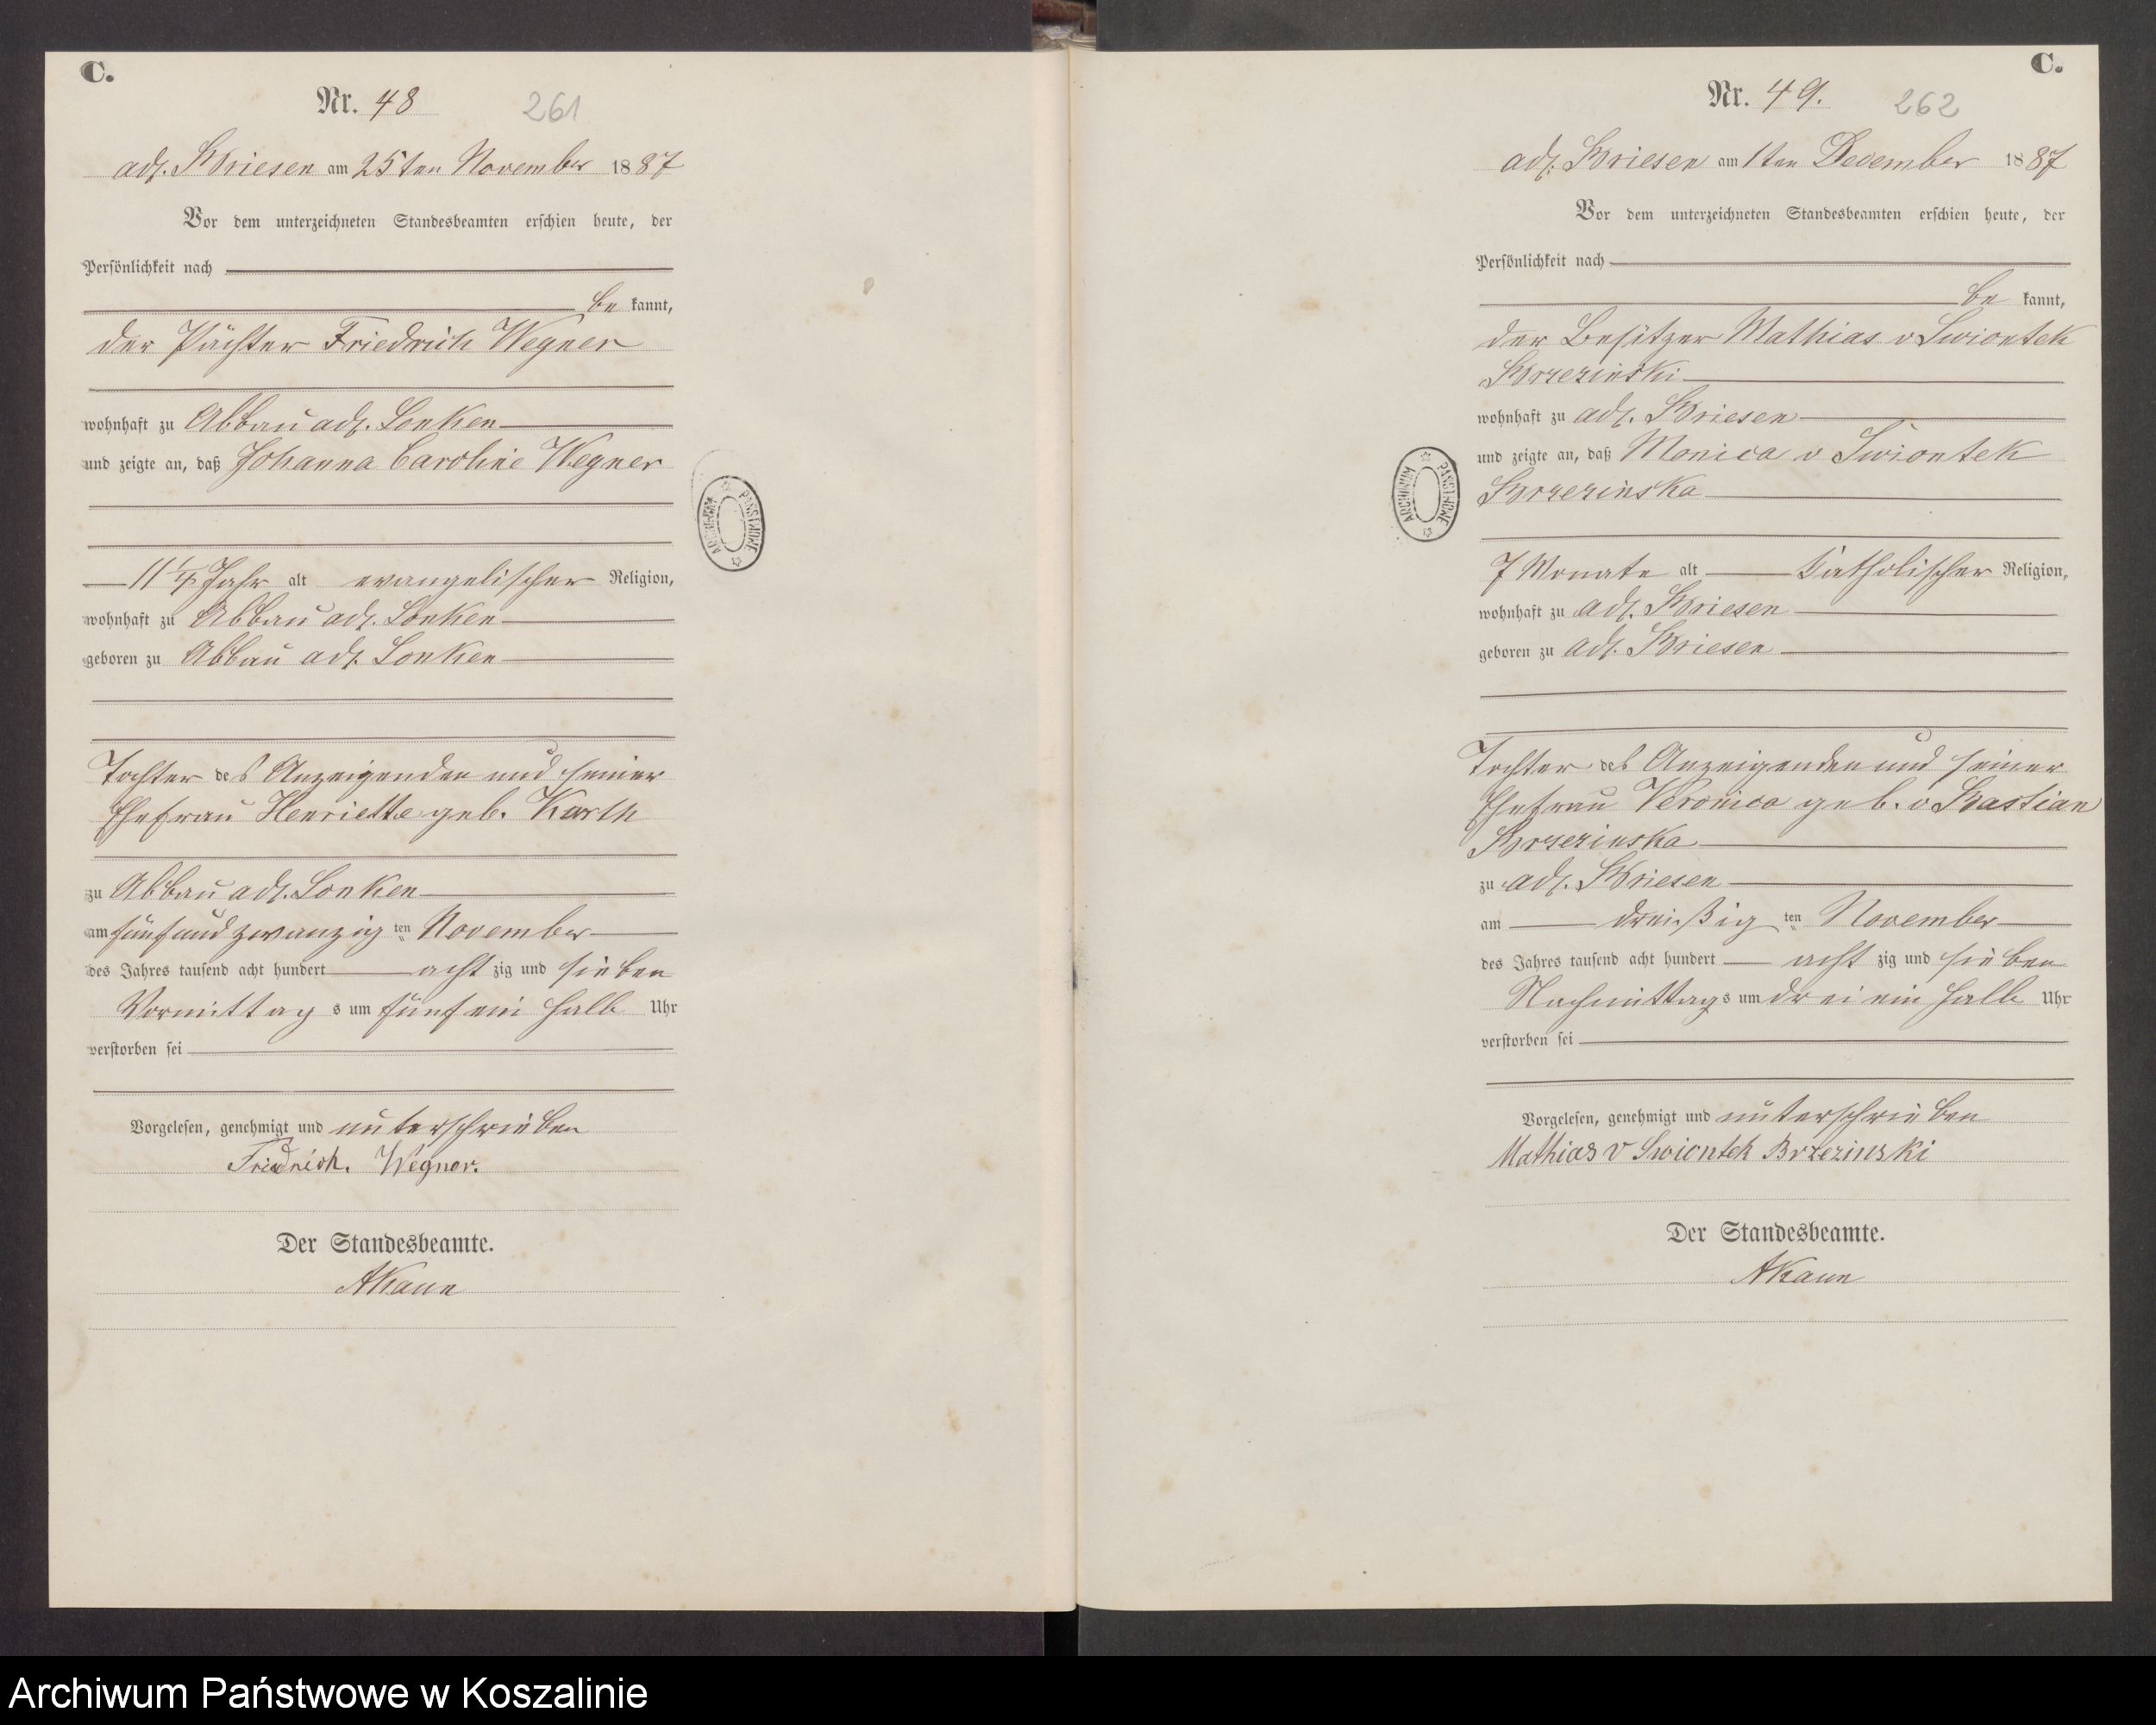 C.
Nr. 48 261
adl. Briesen am 25ten November 1887
Vor dem unterzeichneten Standesbeamten erschien heute, der
Persönlichkeit nach
be kannt,
der Pächter Friedrich Wegner
wohnhaft zu Abbau adl. Lonken
und zeigte an, daß Johanna Caroline Wegner
11 1/4 Jahr alt evangelischer Religion,
wohnhaft zu Abbau adl. Lonken
geboren zu Abbau adl. Lonken
Tochter des Anzeigenden und seiner
Ehefrau Henriette geb. Karth
zu Abbau adl. Lonken
am fünfundzwanzig ten November
des Jahres tausend acht hundert acht zig und sieben
Vormittag s um fünf ein halb Uhr
verstorben sei
Vorgelesen, genehmigt und unterschrieben
Friedrich. Wegner.
Der Standesbeamte.
AKaun
ARCHIWUM PAŃSTWOWE
C.
Nr. 49. 262
adl. Briesen am 1ten December 1887
Vor dem unterzeichneten Standesbeamten erschien heute, der
Persönlichkeit nach
be kannt,
der Besitzer Mathias v Swiontek
Brzezinski
wohnhaft zu adl. Briesen
und zeigte an, daß Monica v Swiontek
Brzezinska
7 Monate alt katholischer Religion,
wohnhaft zu adl. Briesen
geboren zu adl. Briesen
Tochter des Anzeigenden und seiner
Ehefrau Veronica geb. v Bastian
Brzezinska
zu adl. Briesen
am dreißig ten November
des Jahres tausend acht hundert acht zig und sieben
Nachmittags um drei ein halb Uhr
verstorben sei
Vorgelesen, genehmigt und unterschrieben
Mathias v Swiontek Brzezinski
Der Standesbeamte.
AKaun
ARCHIWUM PAŃSTWOWE
Archiwum Państwowe w Koszalinie